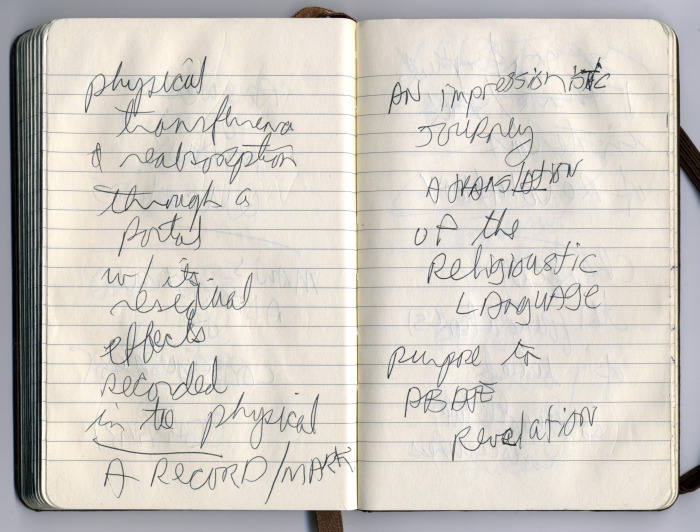 physical
& reabsorption
through a
Portal
w/ its
residual
effects
recorded
in the physical
A RECORD/MARK
AN impressionistic
JOURNEY
A TRANSLATION
OF the
Religioustic
LANGUAGE
purpose to
Revelation